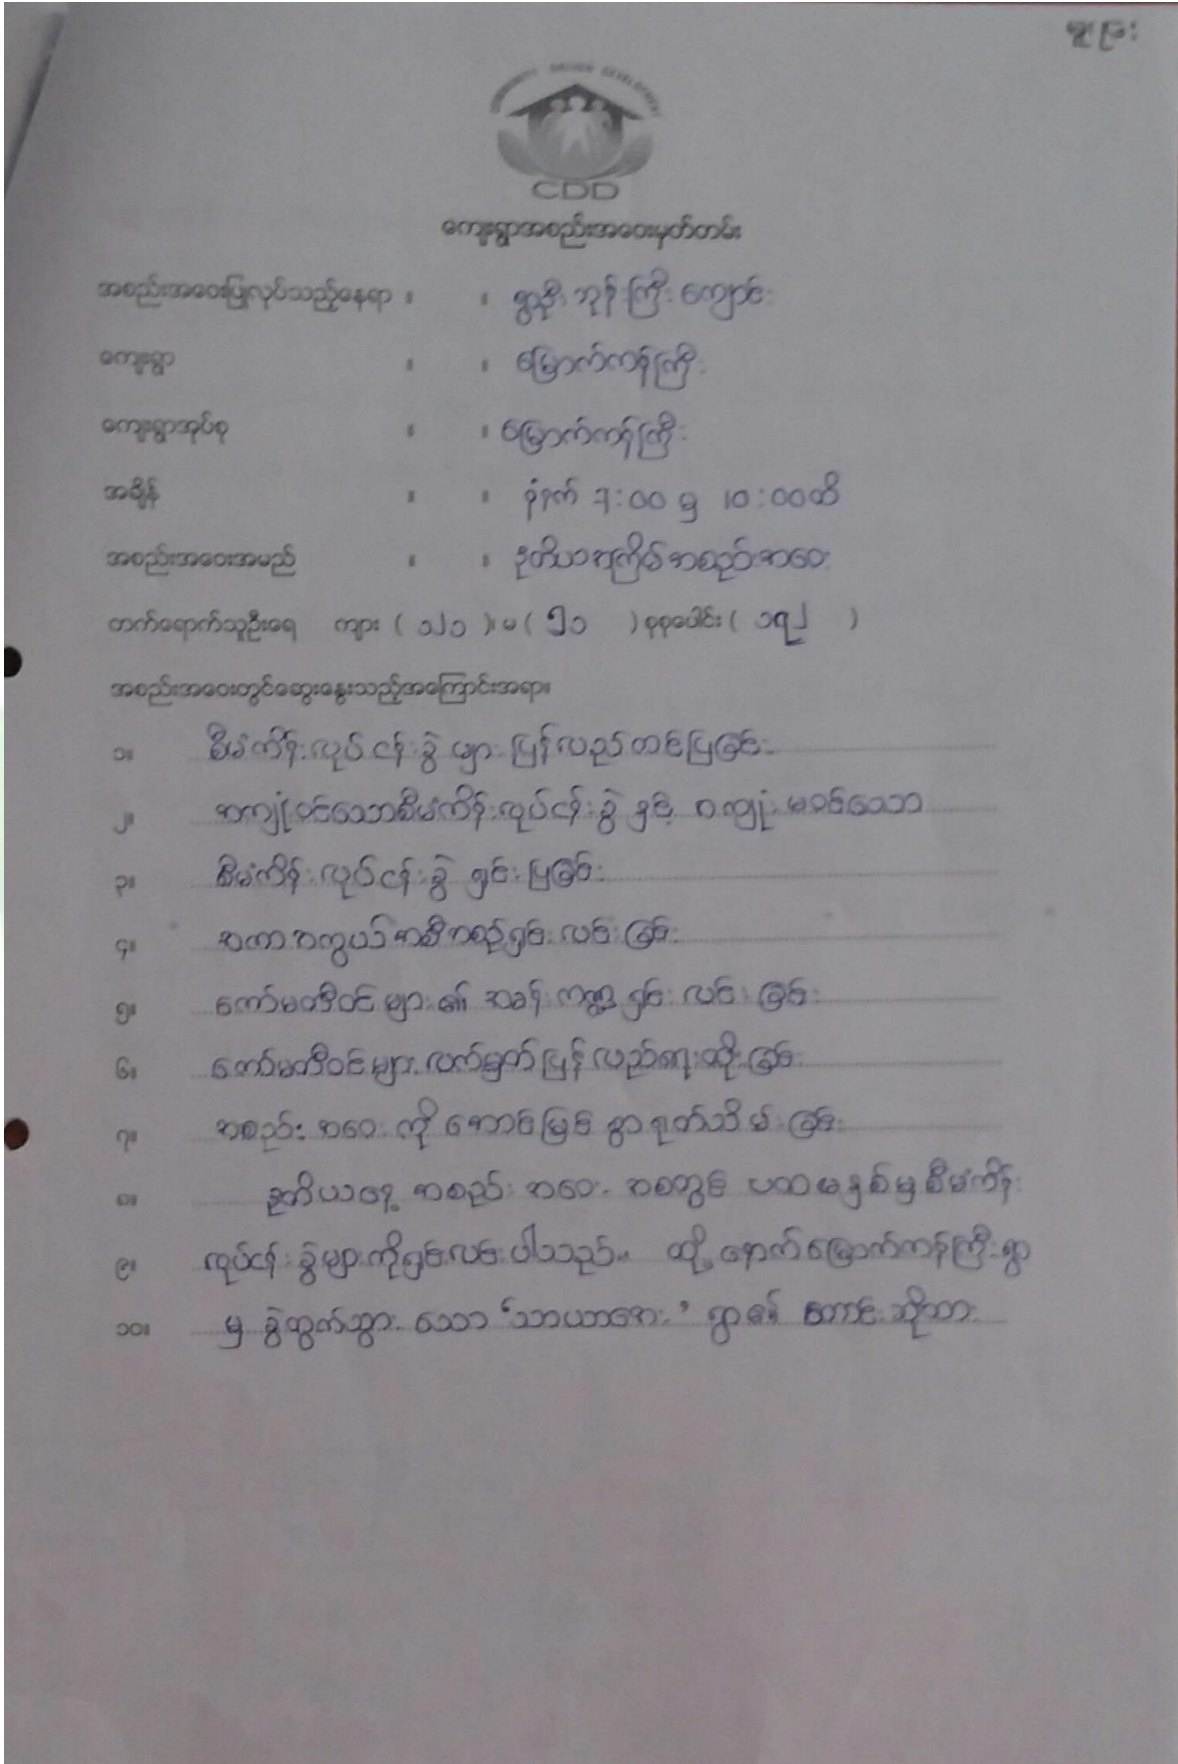 မူပြား
COMMUNITY DRIVEN DEVELOPMENT
CDD
ကျေးရွာအစည်းအဝေးမှတ်တမ်း
အစည်းအဝေးပြုလုပ်သည့်နေရာ ။ ။ ရွာဦးဘုန်းကြီးကျောင်း
ကျေးရွာ ။ ။ မြောက်ကန်ကြီး
ကျေးရွာအုပ်စု ။ ။ မြောက်ကန်ကြီး
အချိန် ။ ။ နံနက် ၇:၀၀ မှ ၁၀:၀၀ထိ
အစည်းအဝေးအမည် ။ ။ ဒုတိယအကြိမ်အစည်းအဝေး
တက်ရောက်သူဦးရေ ကျား ( ၁၂၁ )၊ မ ( ၅၁ ) စုစုပေါင်း ( ၁၇၂ )
အစည်းအဝေးတွင်ဆွေးနွေးသည့်အကြောင်းအရာ။
၁။ စီမံကိန်းလုပ်ငန်းခွဲများပြန်လည်တင်ပြခြင်း
၂။ အကျုံးဝင်သောစီမံကိန်းလုပ်ငန်းခွဲ နှင့် အကျုံးမဝင်သော
၃။ စီမံကိန်းလုပ်ငန်းခွဲ ရှင်းပြခြင်း
၄။ အကာအကွယ်အစီအစဉ်ရှင်းလင်းခြင်း
၅။ ကော်မတီဝင်များ၏ အခန်းကဏ္ဍရှင်းလင်းခြင်း
၆။ ကော်မတီဝင်များလက်မှတ်ပြန်လည်ရေးထိုးခြင်း
၇။ အစည်းအဝေးကိုအောင်မြင်စွာရုတ်သိမ်းခြင်း
၈။ ဒုတိယနေ့ အစည်းအဝေးအစတွင် ပထမနှစ်မှစီမံကိန်း
၉။ လုပ်ငန်းခွဲများကိုရှင်းလင်းပါသည်။ ထို့နောက်မြောက်ကန်ကြီးရွာ
၁၀။ မှ ခွဲထွက်သွားသော ‘သာယာအေး’ ရွာ၏ တောင်းဆိုထား